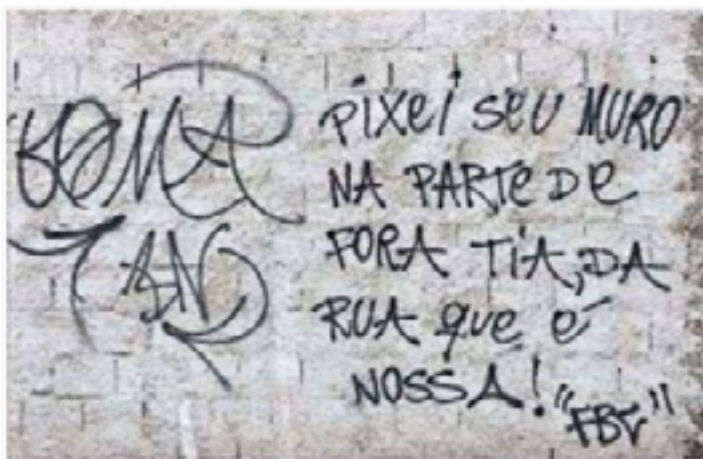 PIXEI SEU MURO
NA PARTE DE
FORA TIA, DA
RUA QUE É
NOSSA!